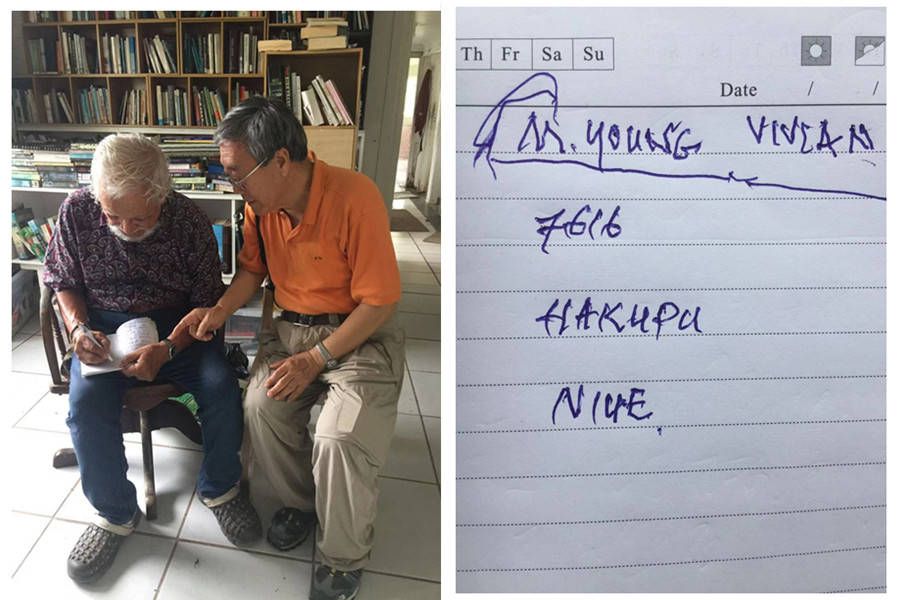 Th Fr Sa Su
Date / /
M. YOUNG VIVIAN
7616
HAKUPU
NIUE